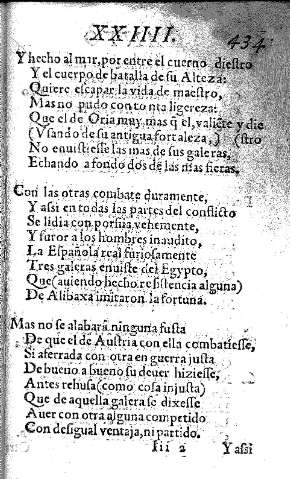 XXIIII. 434
Y hecho al mar, por entre el cuerno diestro
Y el cuerpo de batalla de su Alteza:
Quiere escapar la vida de maestro,
Mas no pudo con tonta ligereza:
Que el de Oria muy mas q̃ el, valiẽte y die
(Vsando de su antigua fortaleza,) (stro
No enuistiesse las mas de sus galeras,
Echando a fondo dos de las mas fieras.
Con las otras combate duramente,
Y assi en todas las partes del conflicto
Se lidia con porfia vehemente,
Y furor a los hombres inaudito,
La Española real furiosamente
Tres galeras enuiste del Egypto,
Que (auiendo hecho resistencia alguna)
De Alibaxa imitaron la fortuna.
Mas no se alabarà ninguna fusta
De que el de Austria con ella combatiesse,
Si aferrada con otra en guerra justa
De bueno a bueno su deuer hiziesse,
Antes rehusa (como cosa injusta)
Que de aquella galera se dixesse
Auer con otra alguna competido
Con desigual ventaja, ni partido.
Iii 2 Y assi